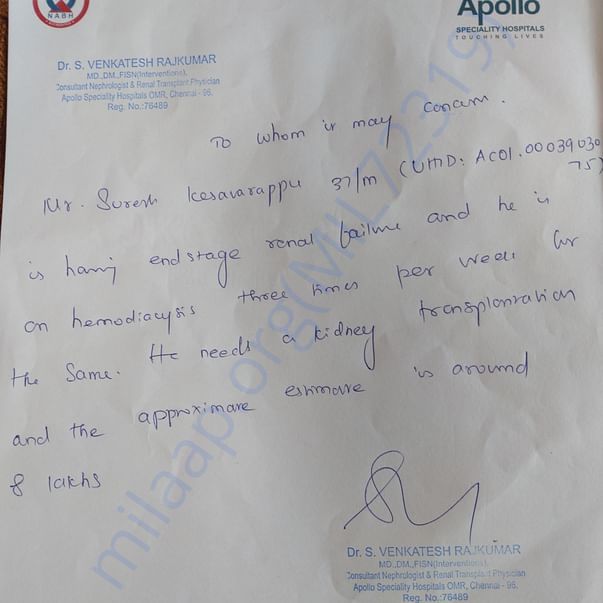 NABH
Apollo
SPECIALITY HOSPITALS
TOUCHING LIVES
Dr. S. VENKATESH RAJKUMAR
MD.,DM.,FISN(Interventions),
Consultant Nephrologist & Renal Transplant Physician
Apollo Speciality Hospitals OMR, Chennai - 96.
Reg. No.:76489
To whom it may concern.
Mr. Suresh Kesavarappu 37/m (UHID: AC01.00039030
75)
is having endstage renal failure and he is
on hemodialysis three times per week for
the same. He needs a kidney transplantation
and the approximate estimate is around
8 lakhs
Dr. S. VENKATESH RAJKUMAR
MD.,DM.,FISN(Interventions),
Consultant Nephrologist & Renal Transplant Physician
Apollo Speciality Hospitals OMR, Chennai - 96.
Reg. No.:76489
milaap.org(MIL723197)